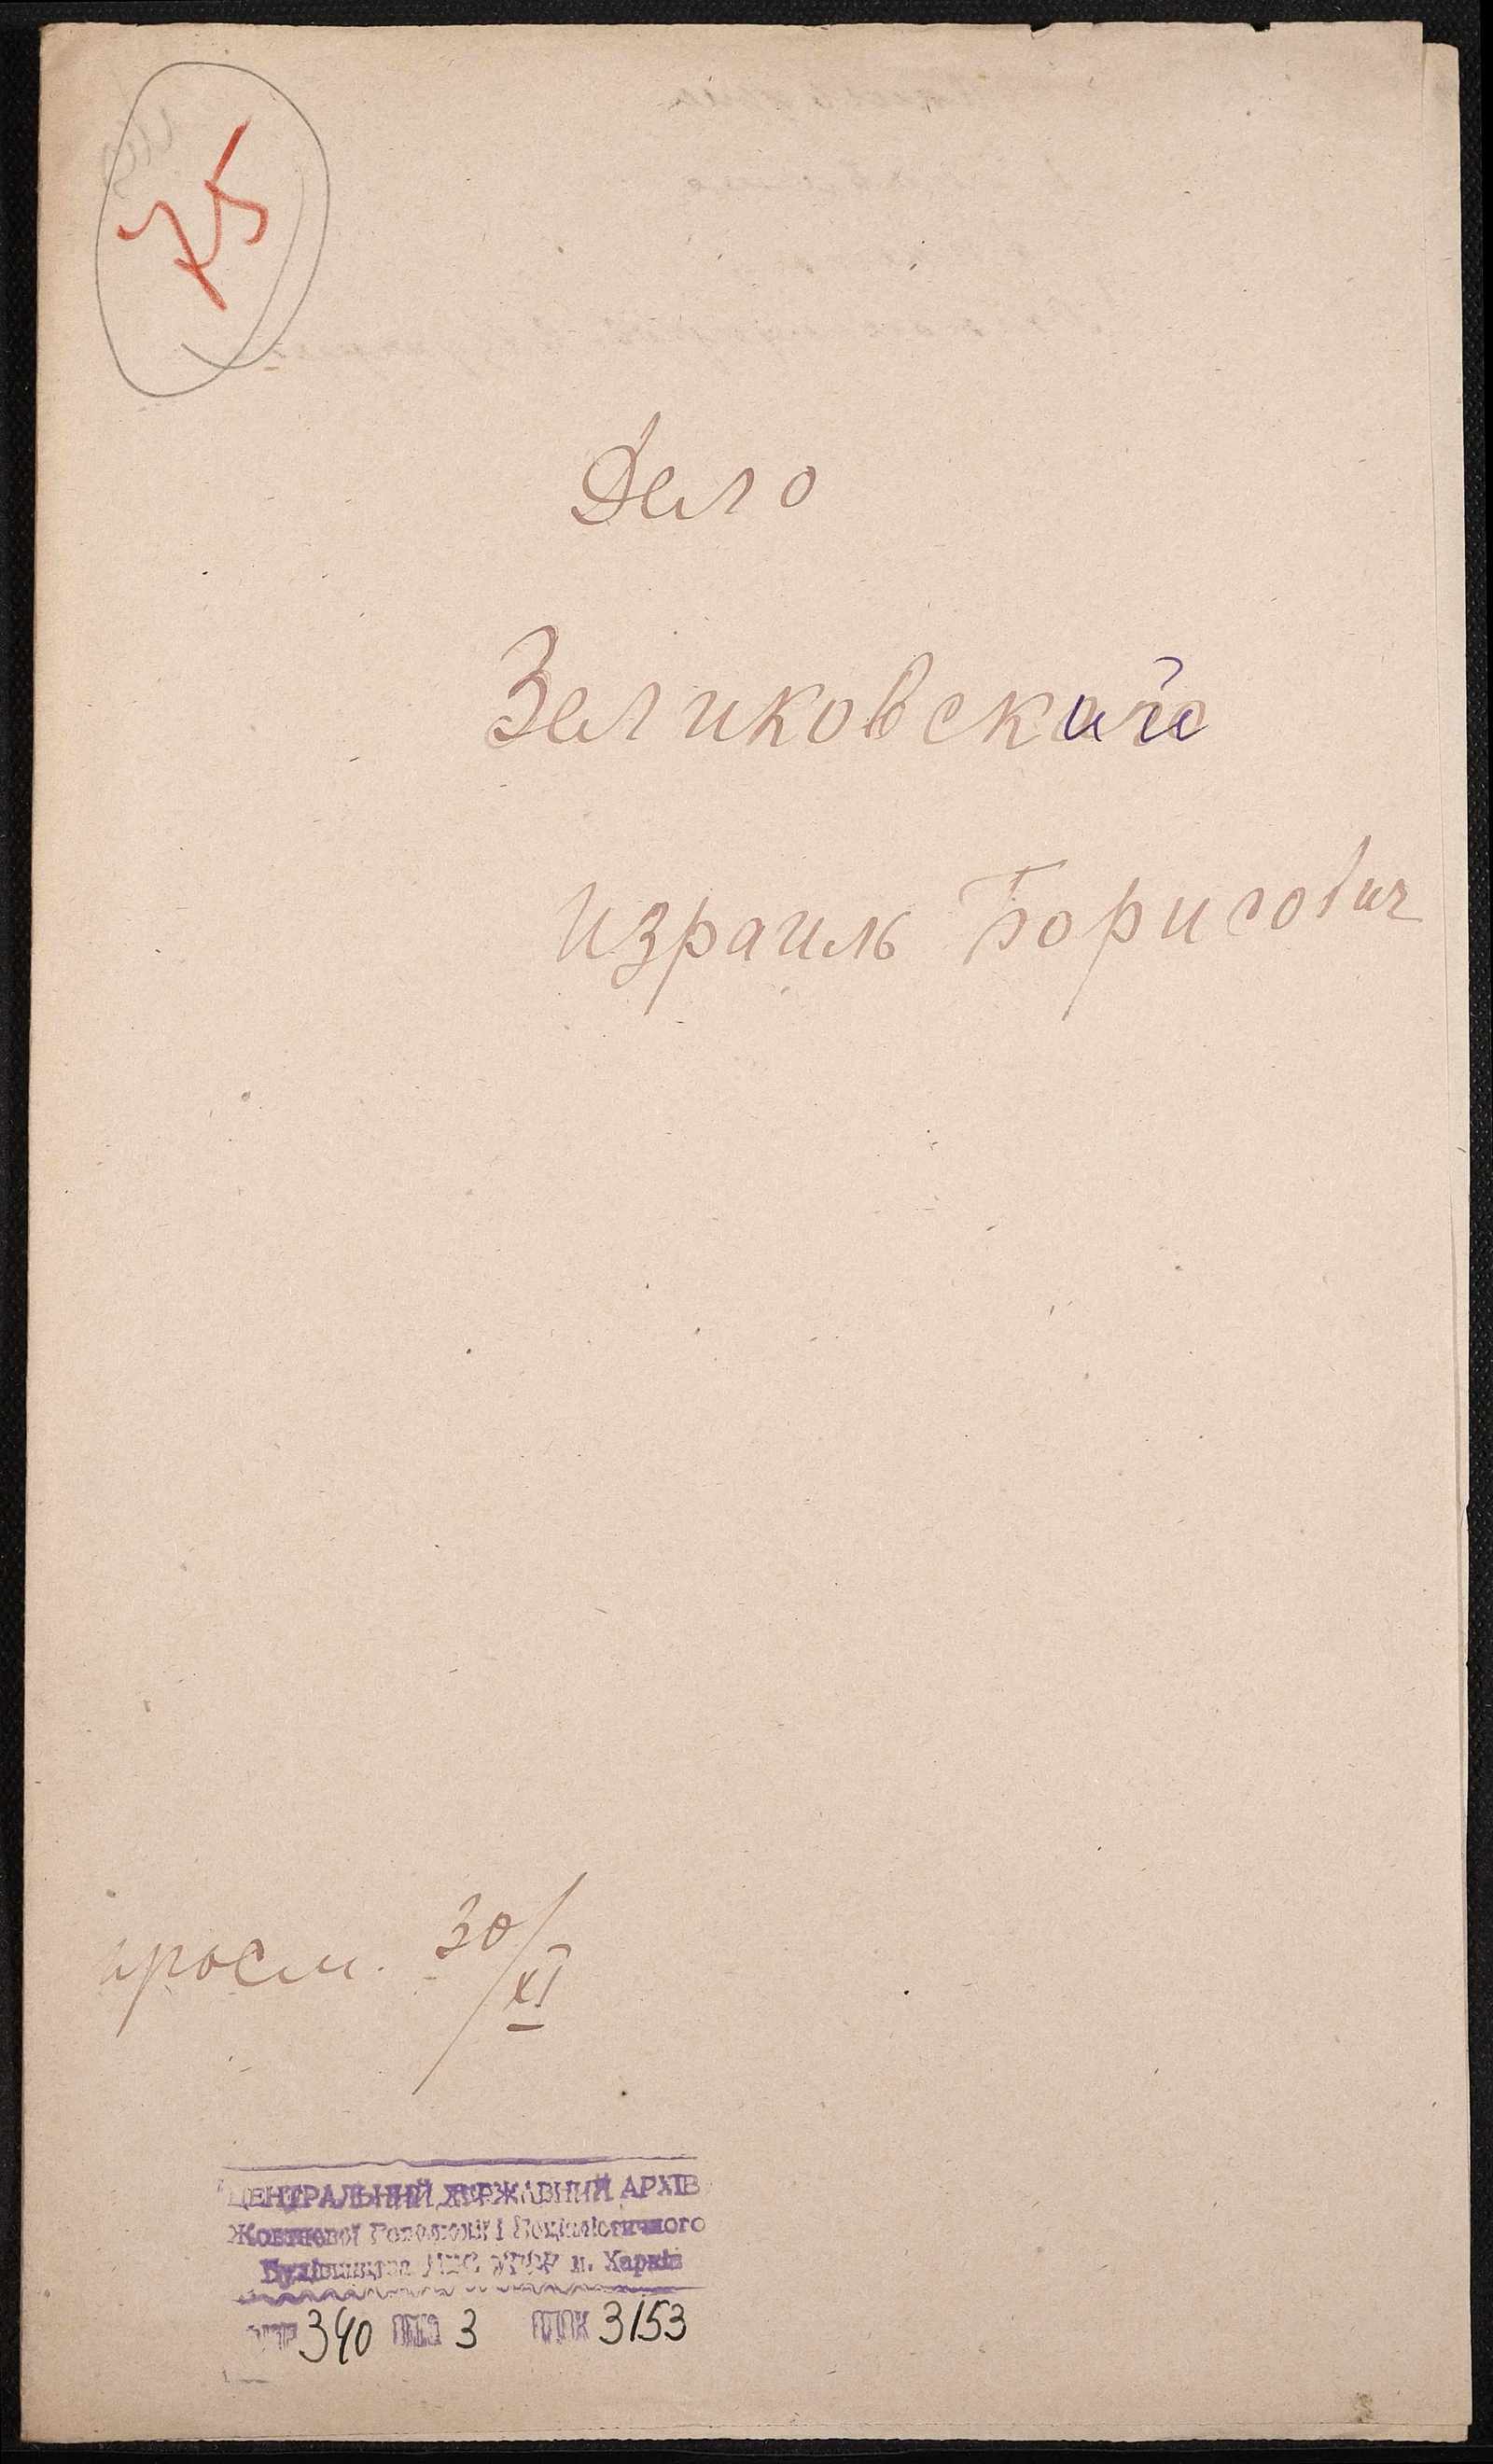 75
Дело
Зеликовский
Израиль Борисович
просм. 30/XI
ЦЕНТРАЛЬНИЙ ДЕРЖАВНИЙ АРХІВ
Жовтневої Революції і Соціалістичного
Будівництва УРСР м. Харків
340 3 3153